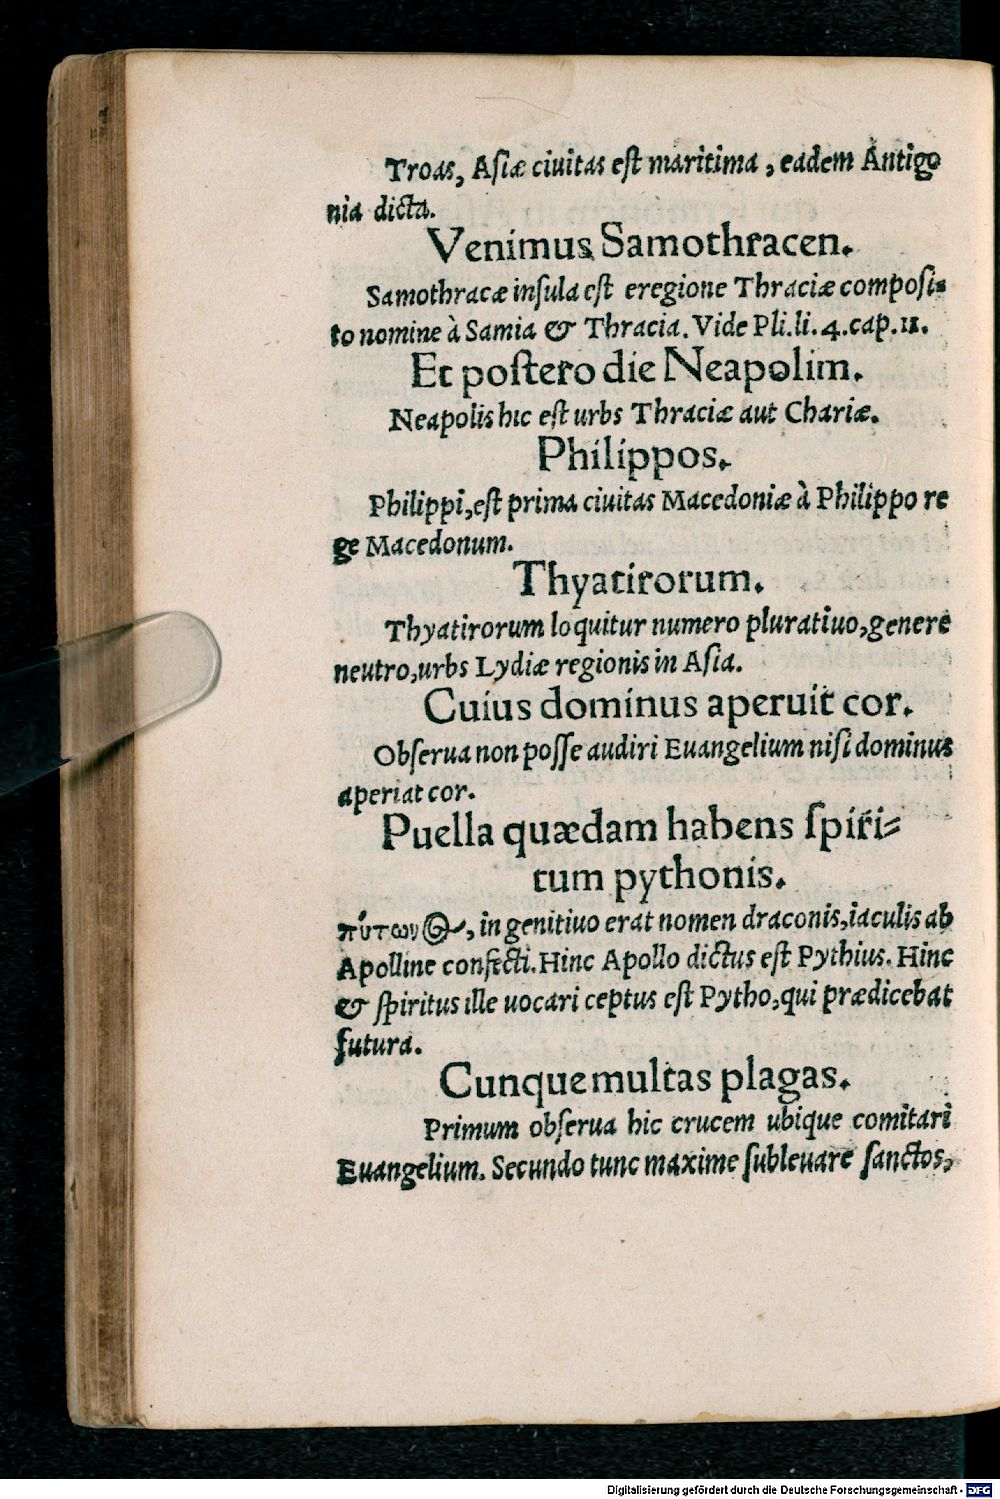 Troas, Asiæ ciuitas est maritima, eadem Antigo
nia dicta.
Venimus Samothracen.
Samothracæ insula est eregione Thraciæ composi-
to nomine à Samia & Thracia. Vide Pli.li.4.cap.11.
Et postero die Neapolim.
Neapolis hic est urbs Thraciæ aut Chariæ.
Philippos.
Philippi, est prima ciuitas Macedoniæ à Philippo re
ge Macedonum.
Thyatirorum.
Thyatirorum loquitur numero pluratiuo, genere
neutro, urbs Lydiæ regionis in Asia.
Cuius dominus aperuit cor.
Obserua non posse audiri Euangelium nisi dominus
aperiat cor.
Puella quædam habens spiri-
tum pythonis.
πύτων⊙, in genitiuo erat nomen draconis, iaculis ab
Apolline confecti. Hinc Apollo dictus est Pythius. Hinc
& spiritus ille uocari ceptus est Pytho, qui prædicebat
futura.
Cunque multas plagas.
Primum obserua hic crucem ubique comitari
Euangelium. Secundo tunc maxime subleuare sanctos,
Digitalisierung gefördert durch die Deutsche Forschungsgemeinschaft - DFG